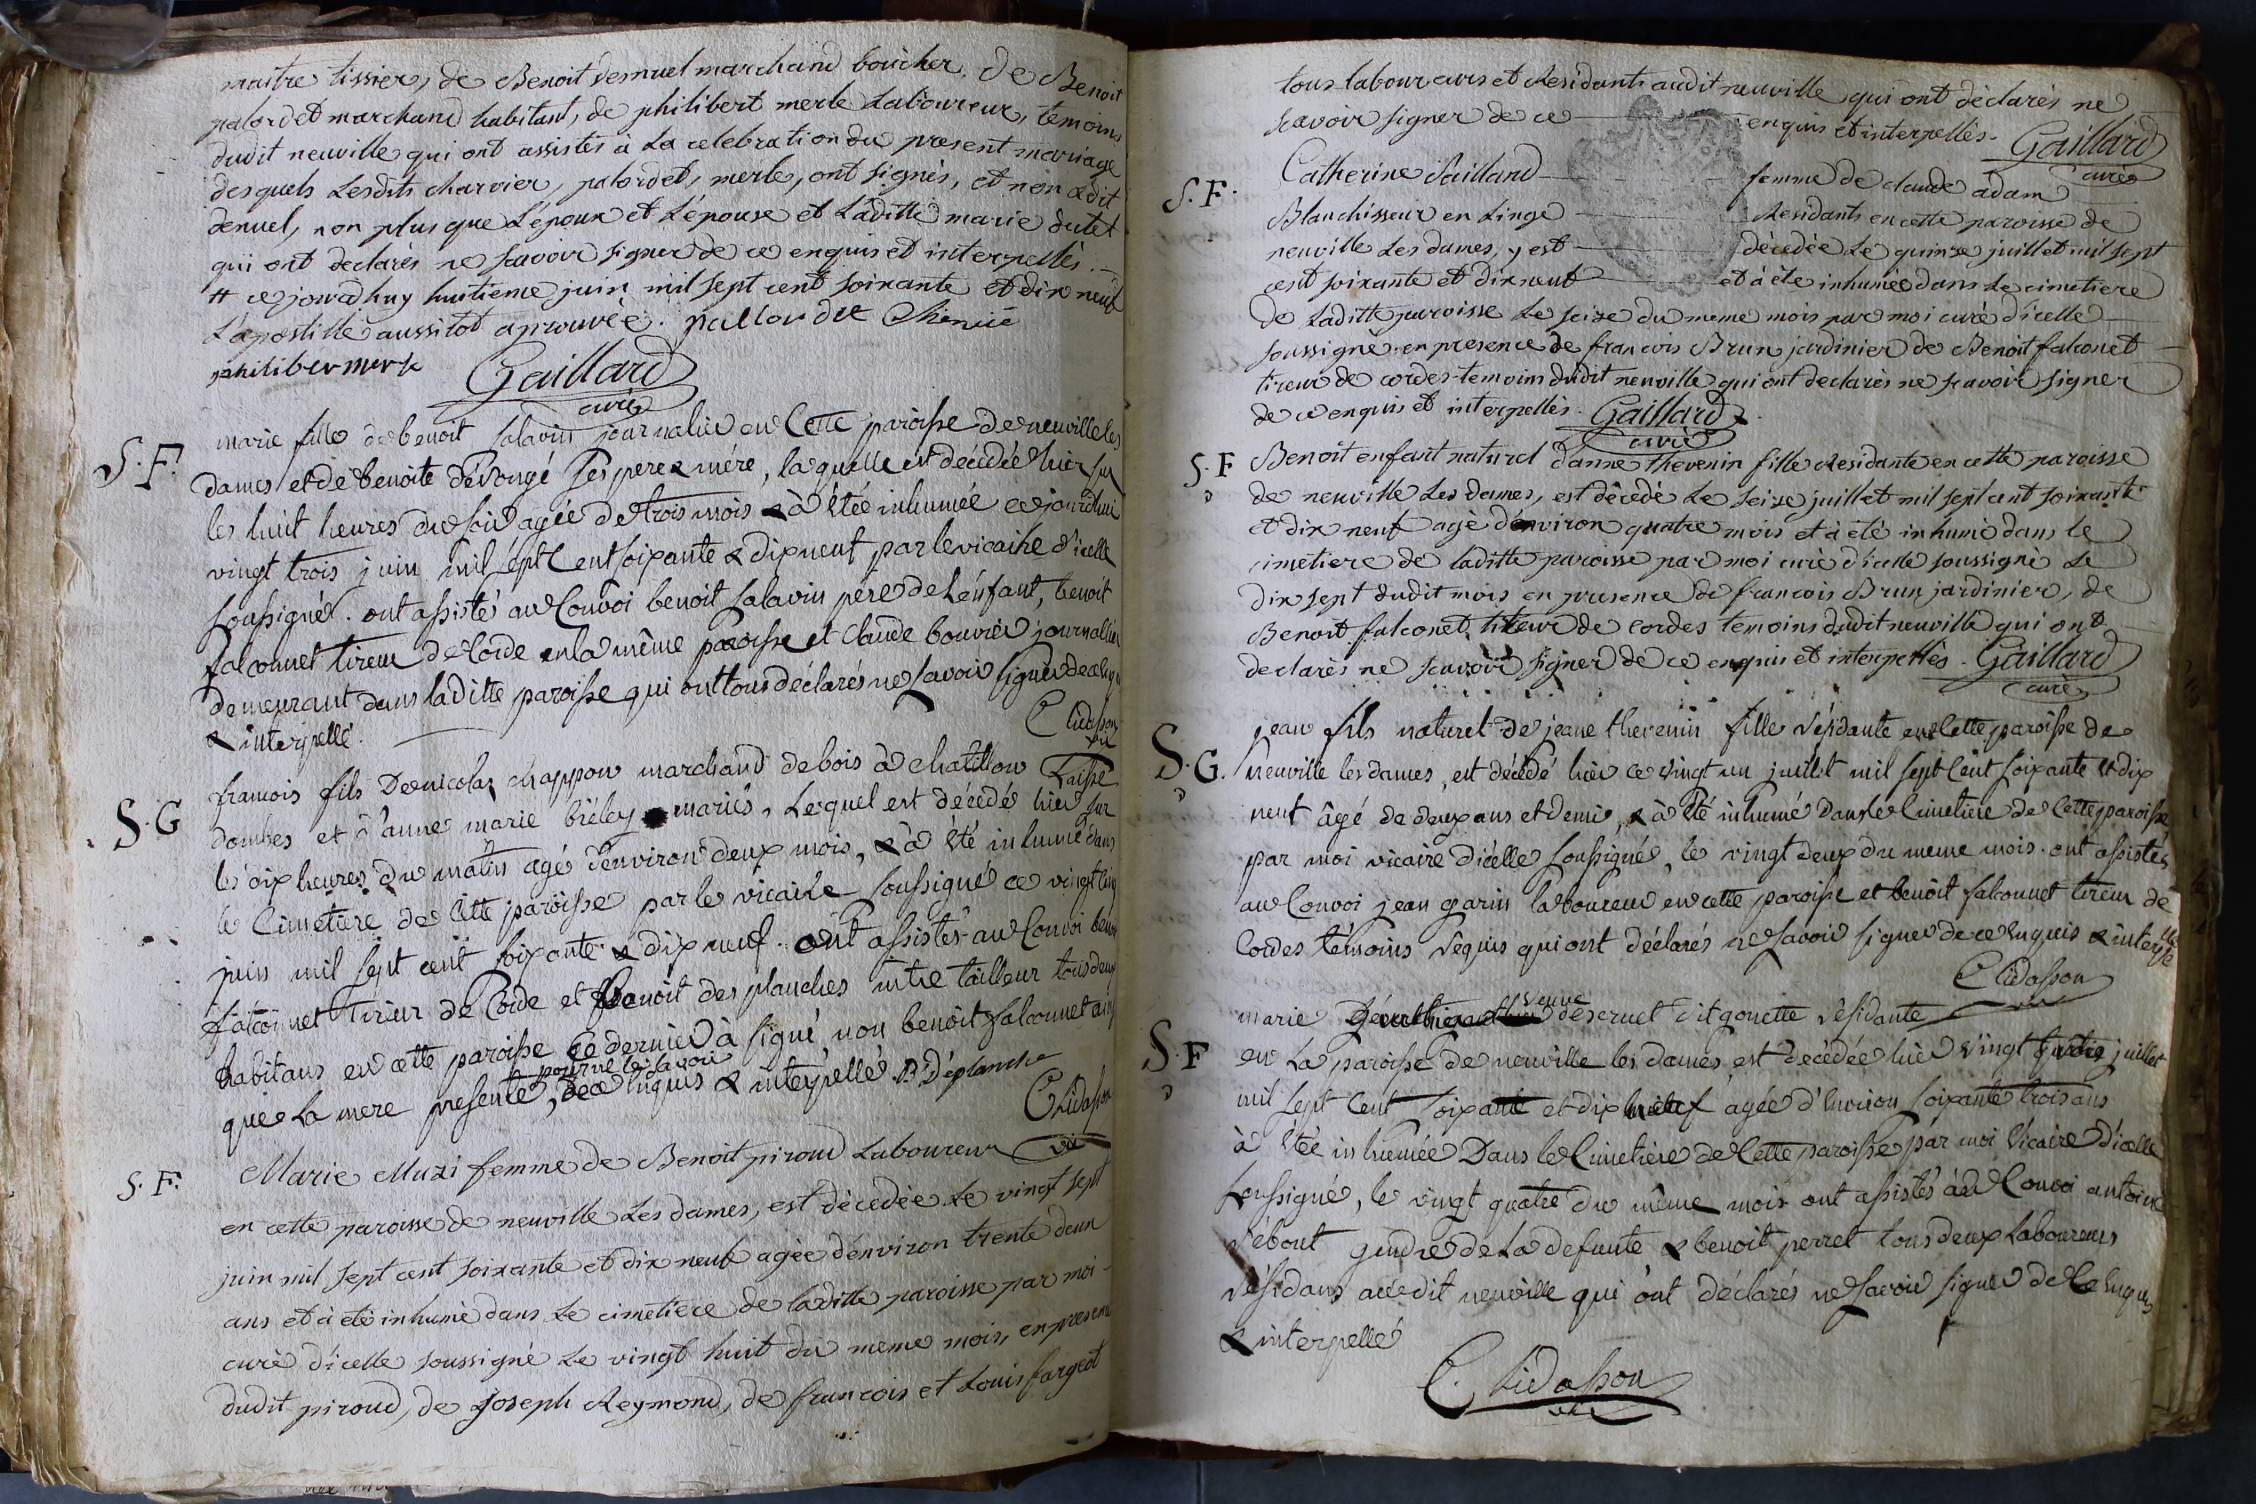 maitre tissier, de Benoit Denuel marchand boucher, de Benoit
palordet marchand habitant, de philibert merle Laboureur, temoins
dudit neuville qui ont assistés à La celebration du present mariage
desquels Lesdits charvier, palordet, merle, ont signés, et non Ledit
denuel, non plus que L'époux et L'épouse et Laditte marie dutet
qui ont declarés ne scavoir signer de ce enquis et interpellés.
# ce jourdhuy huitieme juin mil sept cent soixante et dix neuf
L'apostille aussitot aprouvée. pallordet
philiber merle Gaillard
curé
S. F. marie fille de benoit salavin journalier en Cette paroisse de neuville les
dames et de benoite dévongé ses pere & mére, laquelle est décédée hier sur
les huit heures du soir agée de trois mois & à étée inhumée ce jourd'hui
vingt trois juin mil sept Cent soixante & dix neuf par le vicaire d'icelle
soussigné. ont assistés au Convoi benoit salavin pére de l'enfant, benoit
falconnet tireur de Corde en la même paroisse et Claude bouvier journallier
demeurant dans laditte paroisse qui ont tous déclarés ne savoir signer de ce enquis
& interpellé.
C Lidasson
vic
S. G francois fils De nicolas chappon marchand de bois à chatillon
dombes et d'anne marie biéley mariés, Lequel est décédé hier sur
les dix heures du matin agé d'environ deux mois, & à été inhumé dans
le Cimetiere de Cette paroisse par le vicaire soussigné ce vingt cinq
juin mil sept cent soixante & dix neuf. ont assistés au Convoi benoit
falconnet tireur de Corde et Benoit des planches mtre tailleur tous deux
habitans en cette paroisse Ce dernier à signé non benoit falconnet ainsi
que La mere presente, pour ne le savoir
de ce enquis & interpellé B Déplanche
C Lidasson
vic
S. F. Marie Muzi femme de Benoit piroud Laboureur
en cette paroisse de neuville Les dames, est décedée Le vingt sept
juin mil sept cent soixante et dix neuf agée d'environ trente deux
ans et à été inhumé dans Le cimetiere de laditte paroisse par moi
curé d'icelle soussigné Le vingt huit du meme mois, en presence
dudit piroud, de joseph Reymond, de francois et Louis fargeot
tous Laboureurs et Residants audit neuville, qui ont déclarés ne
scavoir signer de ce enquis et interpellés. Gaillard
curé
S. F. Catherine Saillard femme de claude adam
Blanchisseur en Linge Residants en cette paroisse de
neuville Les dames, y est décedée Le quinze juillet mil sept
cent soixante et dix neuf et à été inhumée dans Le cimetiere
de Laditte paroisse Le seize du meme mois par moi curé d'icelle
soussigné. en presence de francois Brun jardinier de Benoit falconet
tireur de cordes temoins dudit neuville qui ont declarés ne scavoir signer
de ce enquis et interpellés. Gaillard
curé
S. F Benoit enfant naturel d'anne thevenin fille Residante en cette paroisse
de neuville Les dames, est décedé Le seize juillet mil sept cent soixante
et dix neuf agé d'environ quatre mois et à été inhumé dans le
cimetiere de laditte paroisse par moi curé d'icelle soussigné Le
dix sept dudit mois en presence de francois Brun jardinier, de
Benoit falconet tireur de cordes temoins dudit neuville qui ont
declarés ne scavoir signer de ce enquis et interpellés. Gaillard
curé
S. G. jean fils naturel de jeane thevenin fille résidante en Cette paroisse de
neuville les dames, est décédé hier ce vingt un juillet mil sept Cent soixante et dix
neuf âgé de deux ans et demi, & à été inhumé dans le Cimetiere de Cette paroisse
par moi vicaire d'icelle soussigné, le vingt deux du meme mois. ont assistés
au Convoi jean garin laboureur en cette paroisse et benoit falconnet tireur de
Cordes témoins réquis qui ont déclarés ne savoir signer de ce enquis & interpellé
C Lidasson
vic
S. F marie veuve descruet dit gonette résidante
en La paroisse de neuville les dames est décédée hier vingt juillet
mil sept Cent soixante et dix neuf agée d'environ soixante trois ans
à étée inhumée Dans le Cimetiere de Cette paroisse par moi vicaire d'icelle
soussigné, le vingt quatre du même mois ont assistés au Convoi antoine
débout gendre de La defunte & benoit perret tous deux Laboureurs
résidans audit neuville qui ont déclarés ne savoir signer de Ce enquis
& interpellé
C. Lidasson
vic